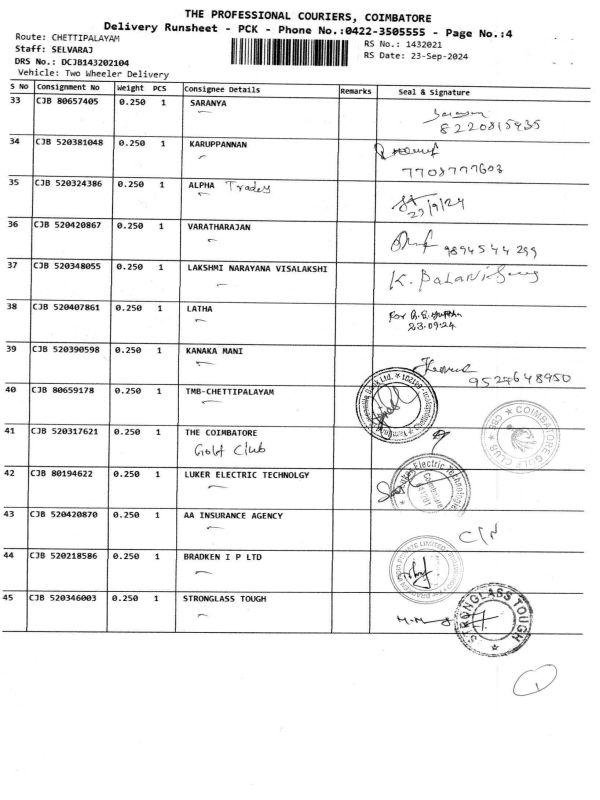 THE PROFESSIONAL COURIERS, COIMBATORE
Delivery Runsheet - PCK - Phone No.:0422-3505555 - Page No.:4
Route: CHETTIPALAYAM
RS No.: 1432021
Staff: SELVARAJ
RS Date: 23-Sep-2024
DRS No.: DCJB143202104
Vehicle: Two Wheeler Delivery
S No Consignment No Weight PCS Consignee Details Remarks Seal & Signature
33 CJB 80657405 0.250 1 SARANYA
8220815935
34 CJB 520381048 0.250 1 KARUPPANNAN
7708777603
35 CJB 520324386 0.250 1 ALPHA Trades
23/9/24
36 CJB 520420867 0.250 1 VARATHARAJAN
9894544299
37 CJB 520348055 0.250 1 LAKSHMI NARAYANA VISALAKSHI
38 CJB 520407861 0.250 1 LATHA
For
23.09.24
39 CJB 520390598 0.250 1 KANAKA MANI
9524648950
40 CJB 80659178 0.250 1 TMB-CHETTIPALAYAM
41 CJB 520317621 0.250 1 THE COIMBATORE
Golf Club
COIMBATORE GOLF CLUB
42 CJB 80194622 0.250 1 LUKER ELECTRIC TECHNOLGY
Luker Electric Technology
Coimbatore
43 CJB 520420870 0.250 1 AA INSURANCE AGENCY
44 CJB 520218586 0.250 1 BRADKEN I P LTD
45 CJB 520346003 0.250 1 STRONGLASS TOUGH
STRONGLASS TOUGH
1